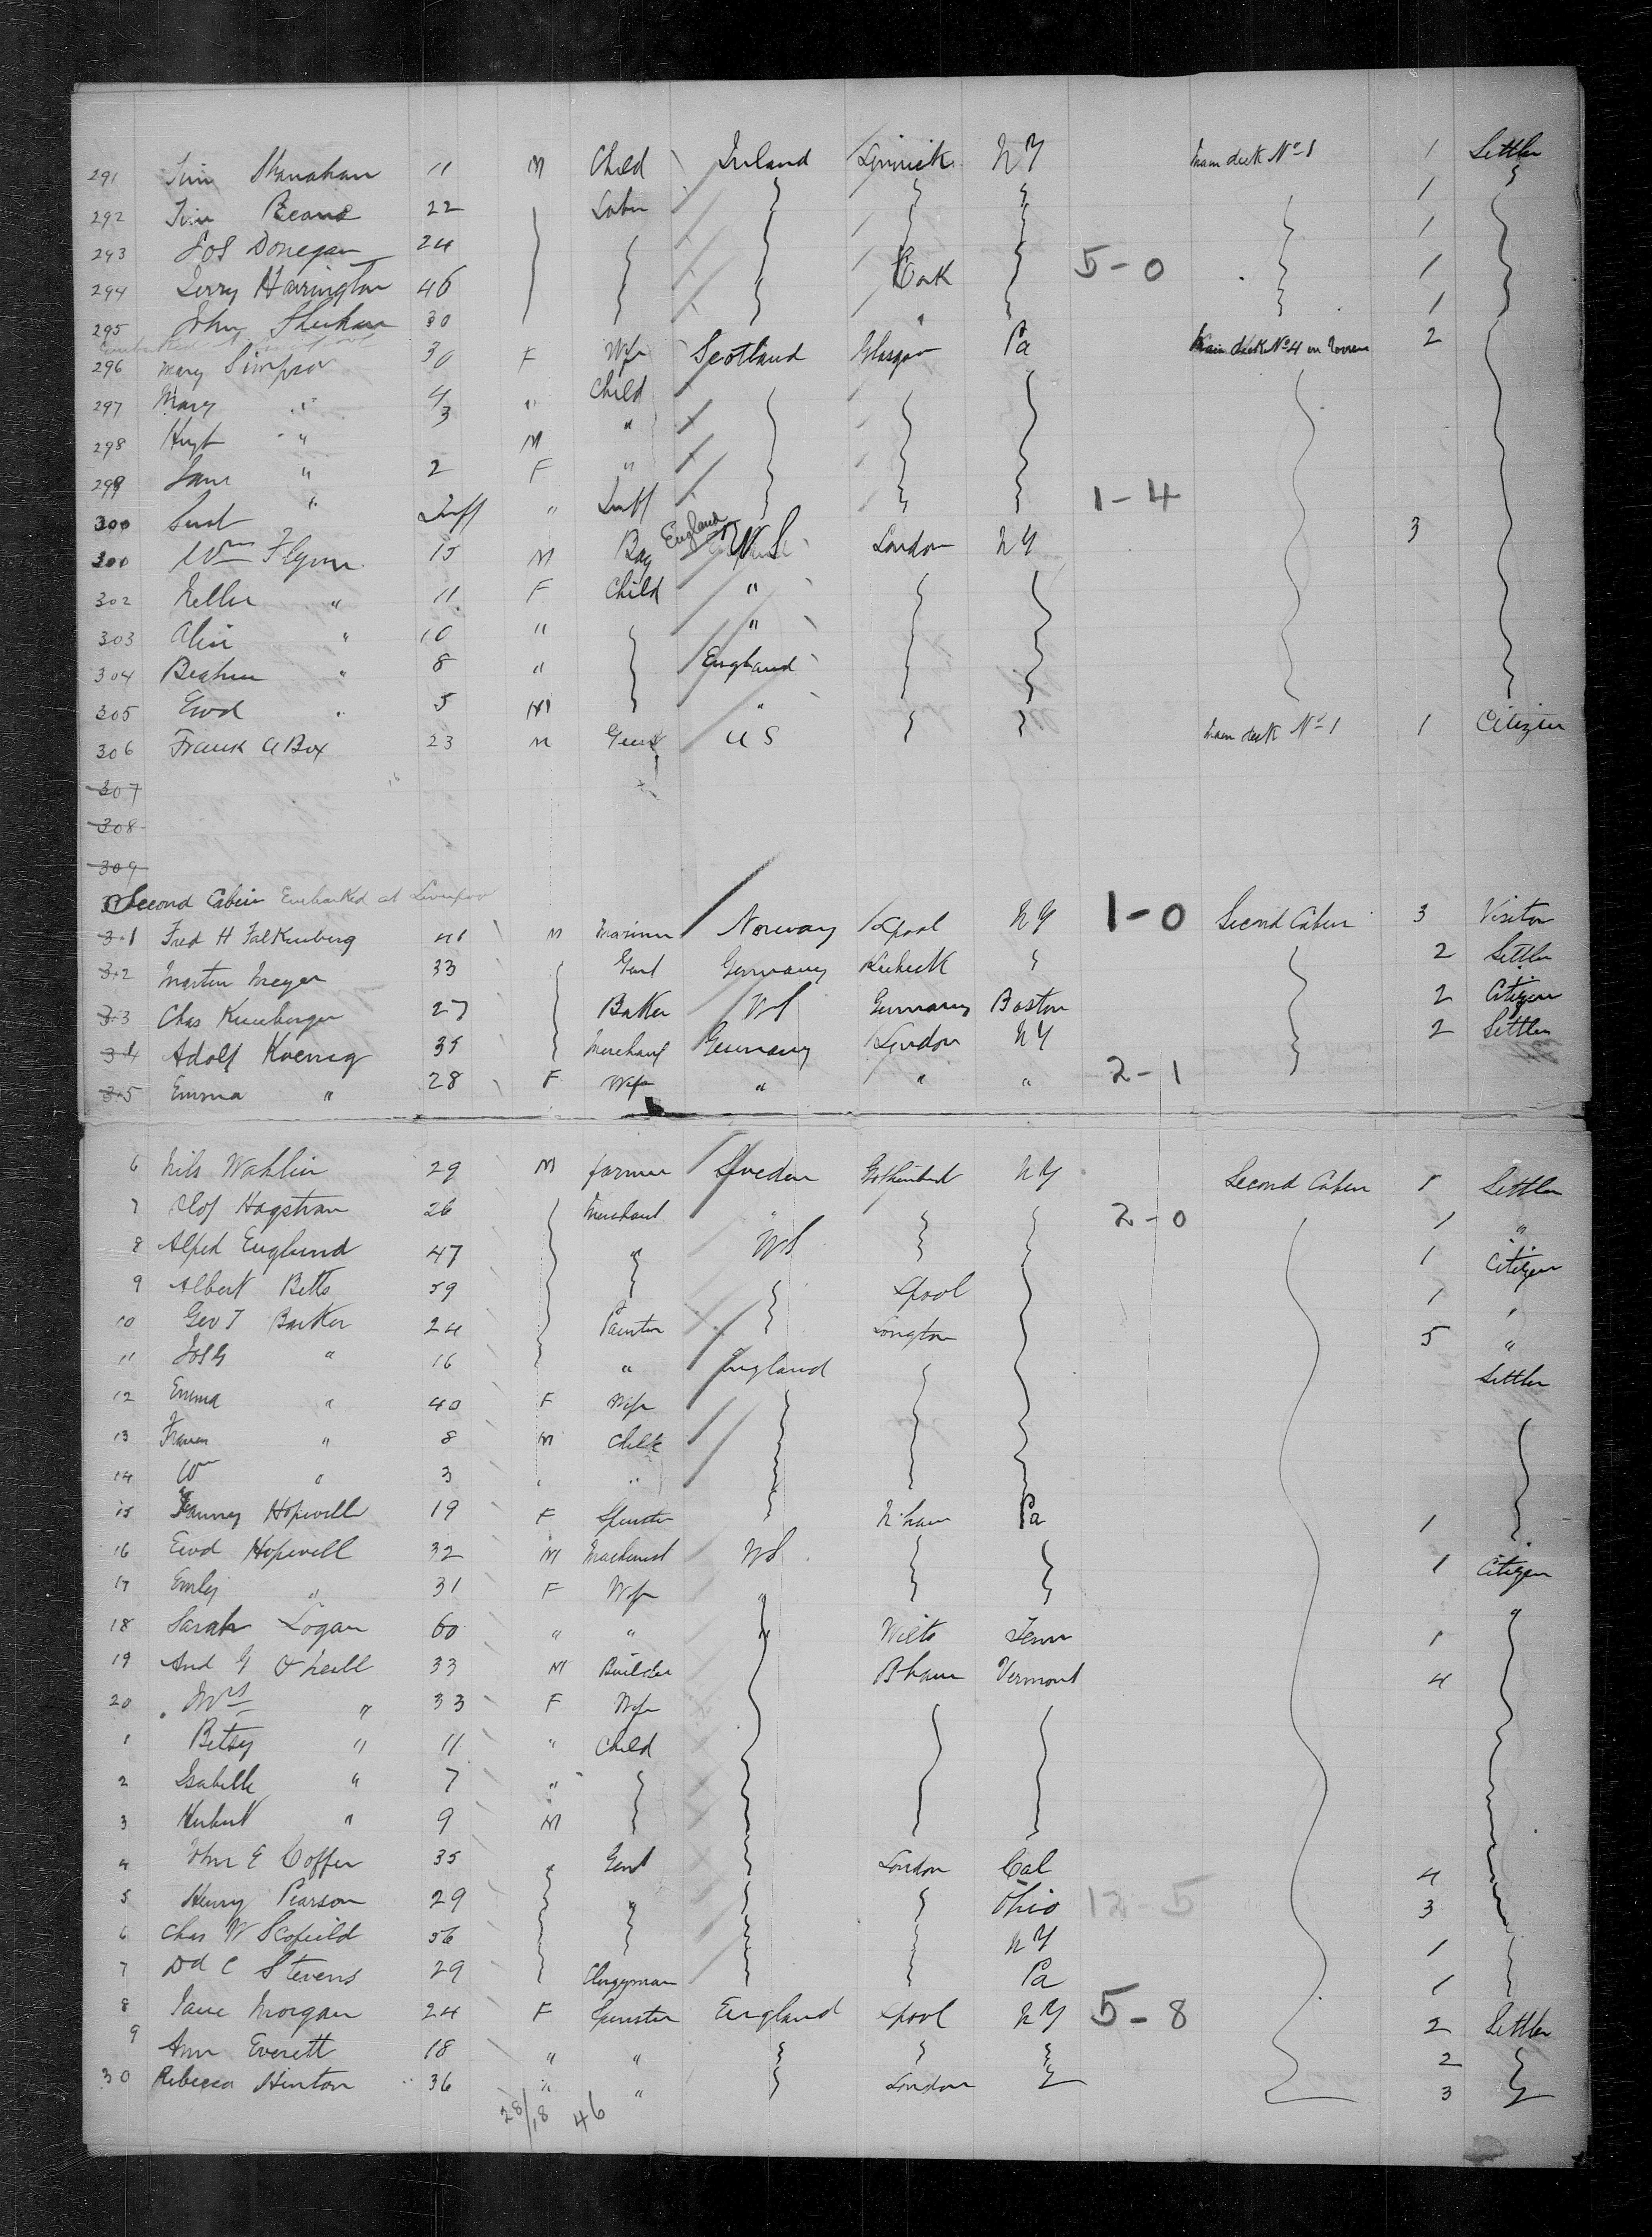 291 Tim Shanahan 11 M Child Ireland Limrick NY Main deck No 1 1 Settler
292 Tim 22 Labr 1
293 Jos Donegan 24 1
294 Jerry Harrington 46 Cork 5-0 1
295 John Sheehan 30 " 1
Embarked at Liverpool
296 Mary Simpson 30 F Wife Scotland Glasgow Pa Main deck No 4 en Rooms 2
297 Mary " 4 " Child
298 Hugh " 3 M "
299 Jane " 2 F "
300 " Inft " Inft 1-4
300 Wm Flynn 15 M Boy England US London NY 3
302 Nellie " 11 F Child "
303 Alice " 10 " "
304 " 8 " England
305 Ewd " 5 M "
306 Frank A Box 23 M Gent US Main deck No 1 1 Citizen
307
308
309
Second Cabin Embarked at Liverpool
311 Fred H Falkenberg 41 M Mariner Norway Lpool NY 1-0 Second Cabin 3 Visitor
312 Martin Meyer 33 Gent Germany Lubeck 2 Settler
313 Chas 27 Baker US Germany Boston 2 Citizen
314 Adolf Koenig 35 Merchant Germany London NY 2 Settler
315 Emma " 28 F Wife " " " 2-1
6 Nils Wahlin 29 M farmer Sweden NY Second Cabin 1 Settler
7 Olof Hagstrom 26 Merchant " 2-0 1 "
8 Alfred Englund 47 " US 1 Citizen
9 Albert Betts 59 Lpool 1 "
10 Geo T Barker 24 Painter Longton 5 "
11 Jos G " 16 " England Settler
12 Emma " 40 F Wife
13 " 8 M Child
14 Wm " 3 " "
15 Fanny Hopewell 19 F Spinster N'ham Pa 1
16 Ewd Hopewell 32 M Machinist US 1 Citizen
17 Emily " 31 F Wife " "
18 Sarah Logan 60 " " " Wilts Tenn 1
19 And G O'Neill 33 M Builder Bham Vermont 4
20 Mrs " 33 F Wife
1 Betsy " 11 " Child
2 Isabelle " 7 "
3 Herbert " 9 M
4 John E Coffer 35 " Gent London Cal 4
5 Henry Pearson 29 " Ohio 12-5 3
6 Chas W Scofield 56 NY 1
7 Dd C Stevens 29 Clergyman Pa 1
8 Jane Morgan 24 F Spinster England Lpool NY 5-8 2 Settler
9 Ann Everett 18 " " 2
30 Rebecca Hinton 36 " " London 3
28/18 46